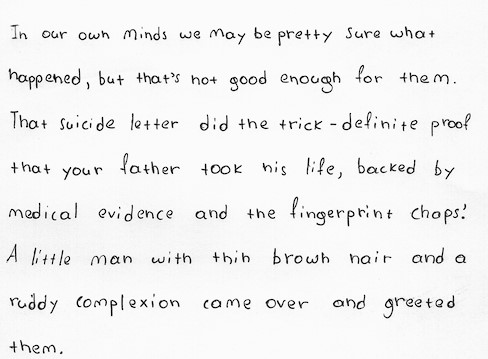 In our own minds we may be pretty sure what
happened, but that's not good enough for them.
That suicide letter did the trick - definite proof
that your father took his life, backed by
medical evidence and the fingerprint chaps!
A little man with thin brown hair and a
ruddy complexion came over and greeted
them.